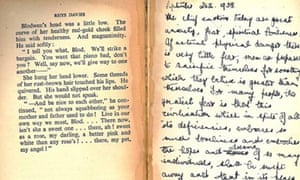 RHYS DAVIES
Blodwen's head was a little low. The
curve of her healthy red-gold cheek filled
him with tenderness. And magnanimity.
He said softly:
"I tell you what, Blod. We'll strike a
bargain. You want that piano bad, don't
you? Well, say now, we'll give way to one
another—"
She hung her head lower. Some threads
of her rust-brown hair touched his lips. He
shivered. His hand slipped over her shoul-
der. But she would not speak.
"—And be nice to each other," he con-
tinued, "not always squabbling as your
mother and father used to do! Live in our
own way we must, Blod. . . . There now,
isn't she a sweet one . . . there, ah! sweet
as a rose, my darling, a better pink and
white than any rose's . . . there, my pet,
my angel!"
1938
The chief emotion today are great
anxiety, fear, spiritual loneliness.
Of natural physical danger there
is very little fear, men are prepared
to
which they believe is greater than
themselves. For many people, the
greatest fear is that this
civilisation which in spite of all
its deficiencies, embraces so
much loveliness and embodies
the hopes and of so many
individuals, shall be swept
away and that in its place